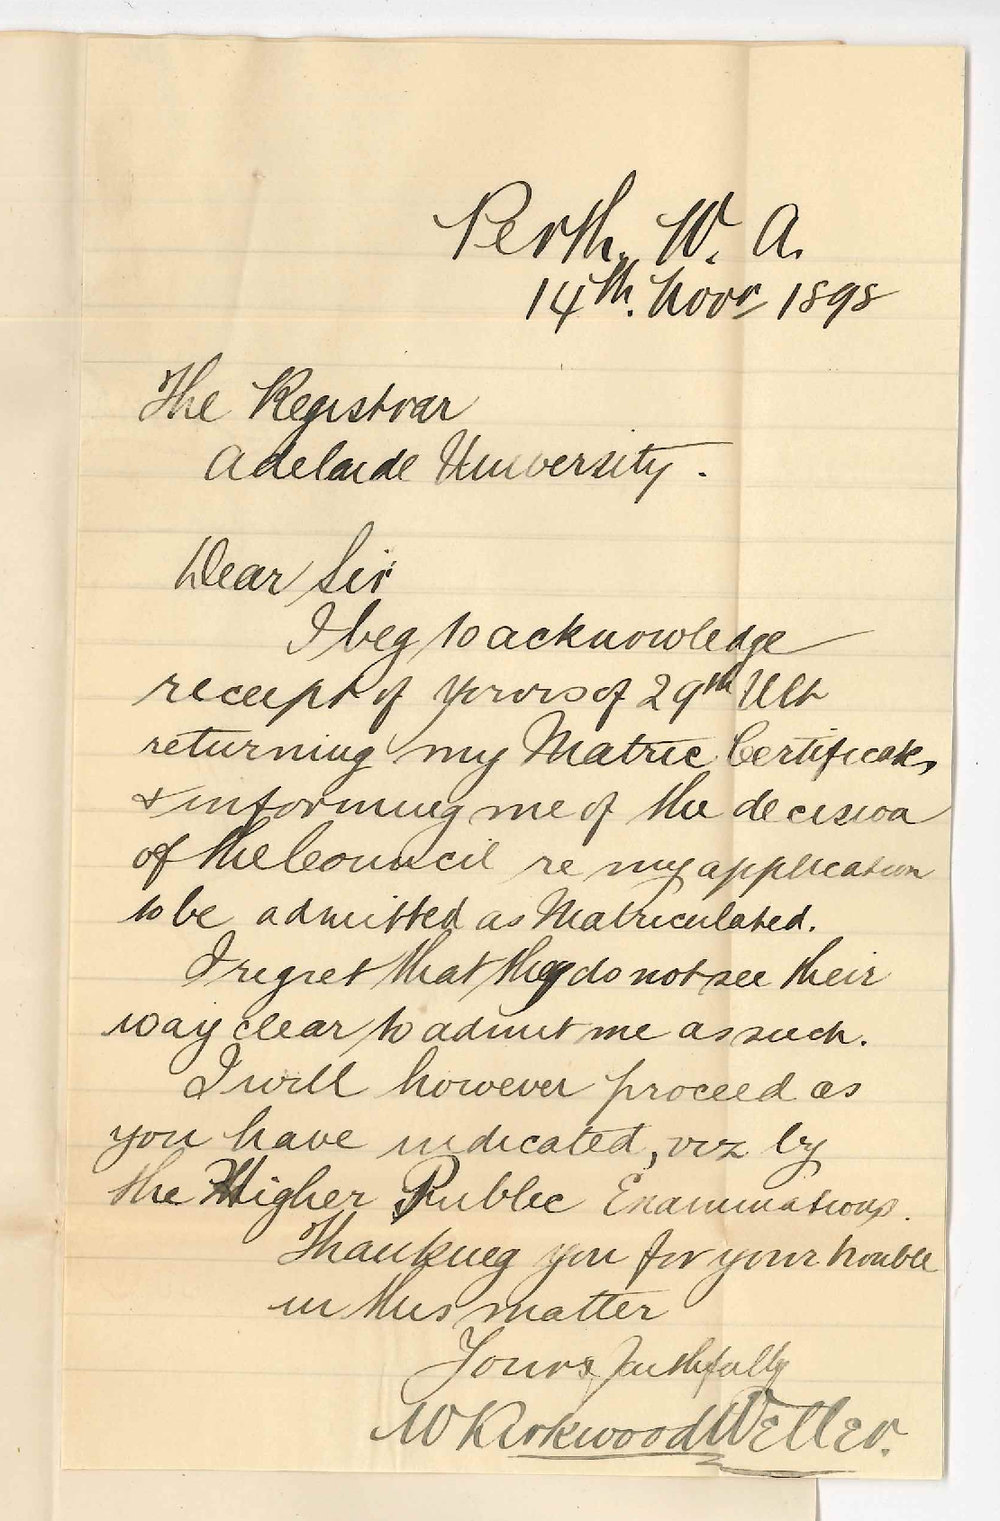 Perth. W. A.
14th. Novr 1898
The Registrar
Adelaide University.
Dear Sir
I beg to acknowledge
receipt of yours of 29th Ult
returning my Matric Certificate,
& informing me of the decision
of the Council re my application
to be admitted as Matriculated.
I regret that they do not see their
way clear to admit me as such.
I will however proceed as
you have indicated, viz by
the Higher Public Examinations.
Thanking you for your trouble
in this matter
Yours faithfully
W Kirkwood Weller.